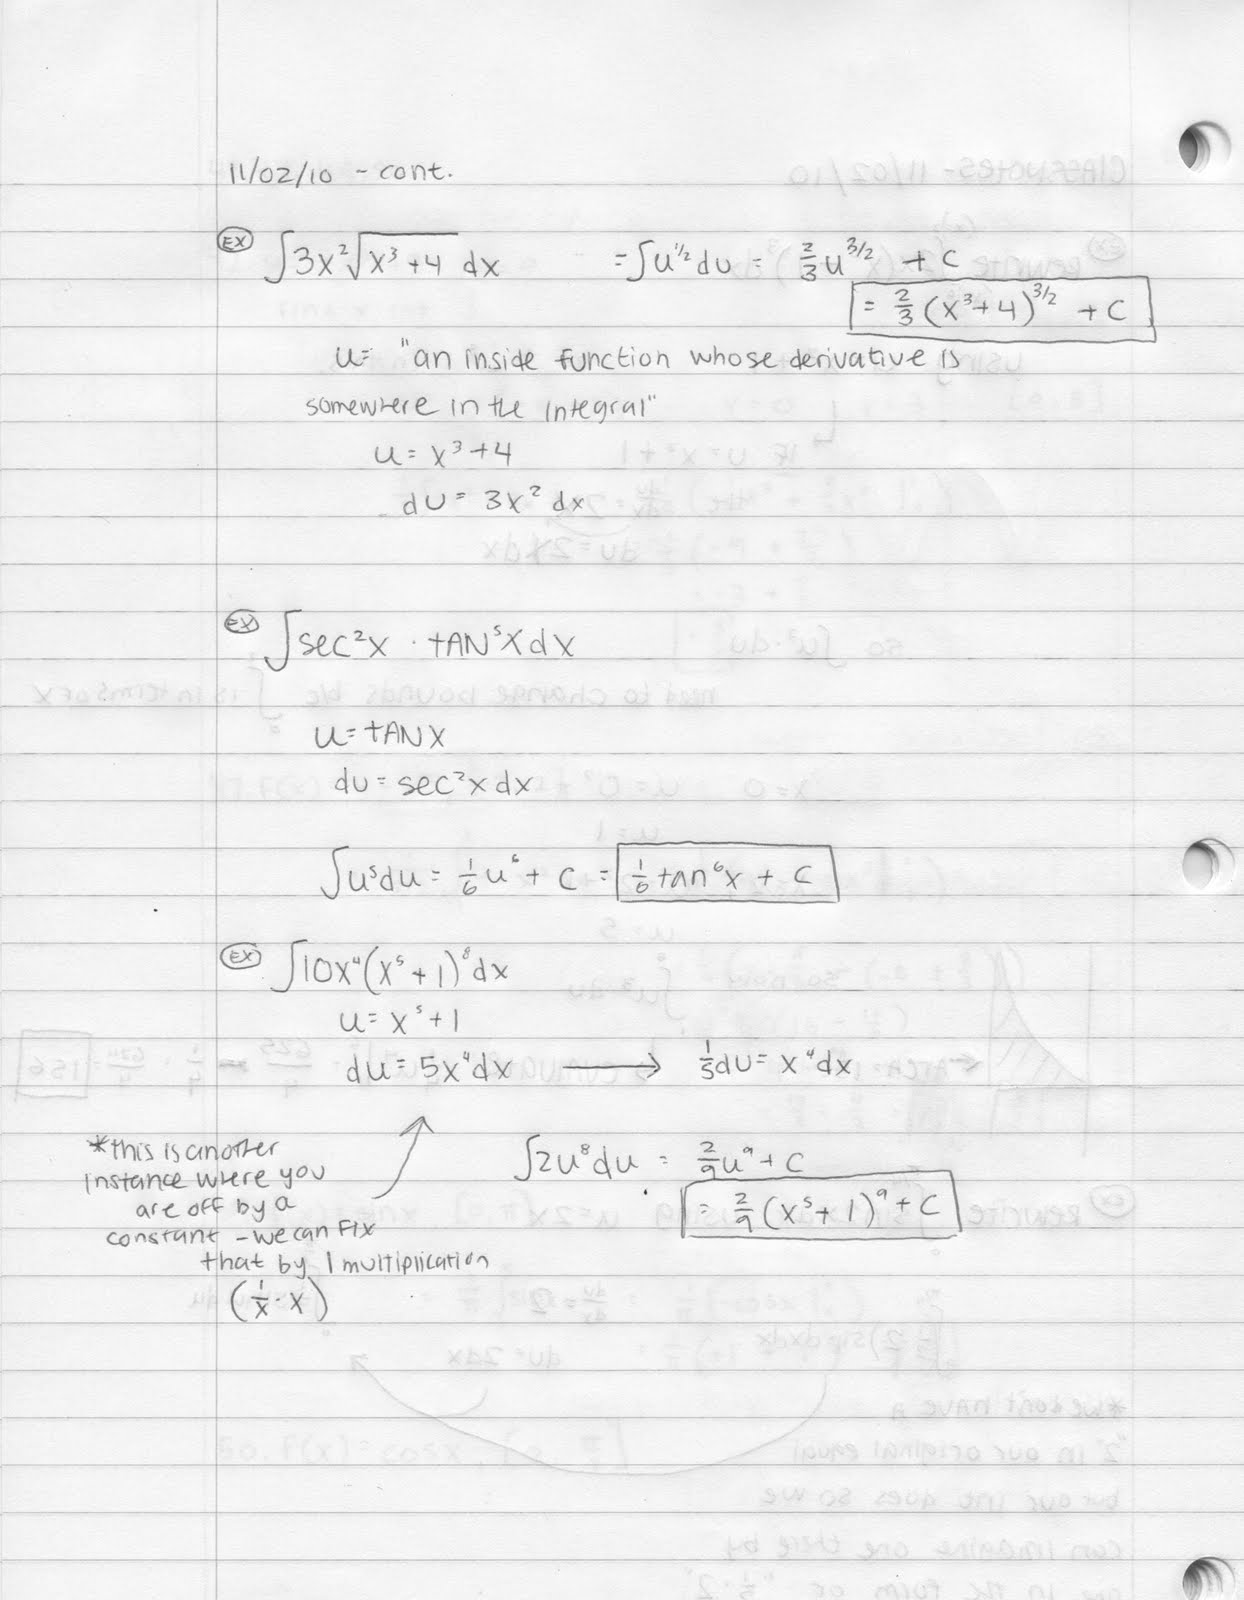 11/02/10 - cont.
EX ∫3x²√(x³+4) dx = ∫u^1/2 du = 2/3 u^3/2 + C
= 2/3 (x³+4)^3/2 + C
u= "an inside function whose derivative is
somewhere in the integral"
u= x³+4
du= 3x² dx
EX ∫sec²x · tAN⁵x dx
u= tANx
du= sec²x dx
∫u⁵du = 1/6 u⁶ + C = 1/6 tan⁶x + C
EX ∫10x⁴(x⁵+1)⁸dx
u= x⁵+1
du= 5x⁴dx → 1/5 du= x⁴dx
*this is another
instance where you
are off by a
constant - we can fix
that by 1 multiplication
(1/x · x)
∫2u⁸du = 2/9 u⁹+C
= 2/9 (x⁵+1)⁹ + C